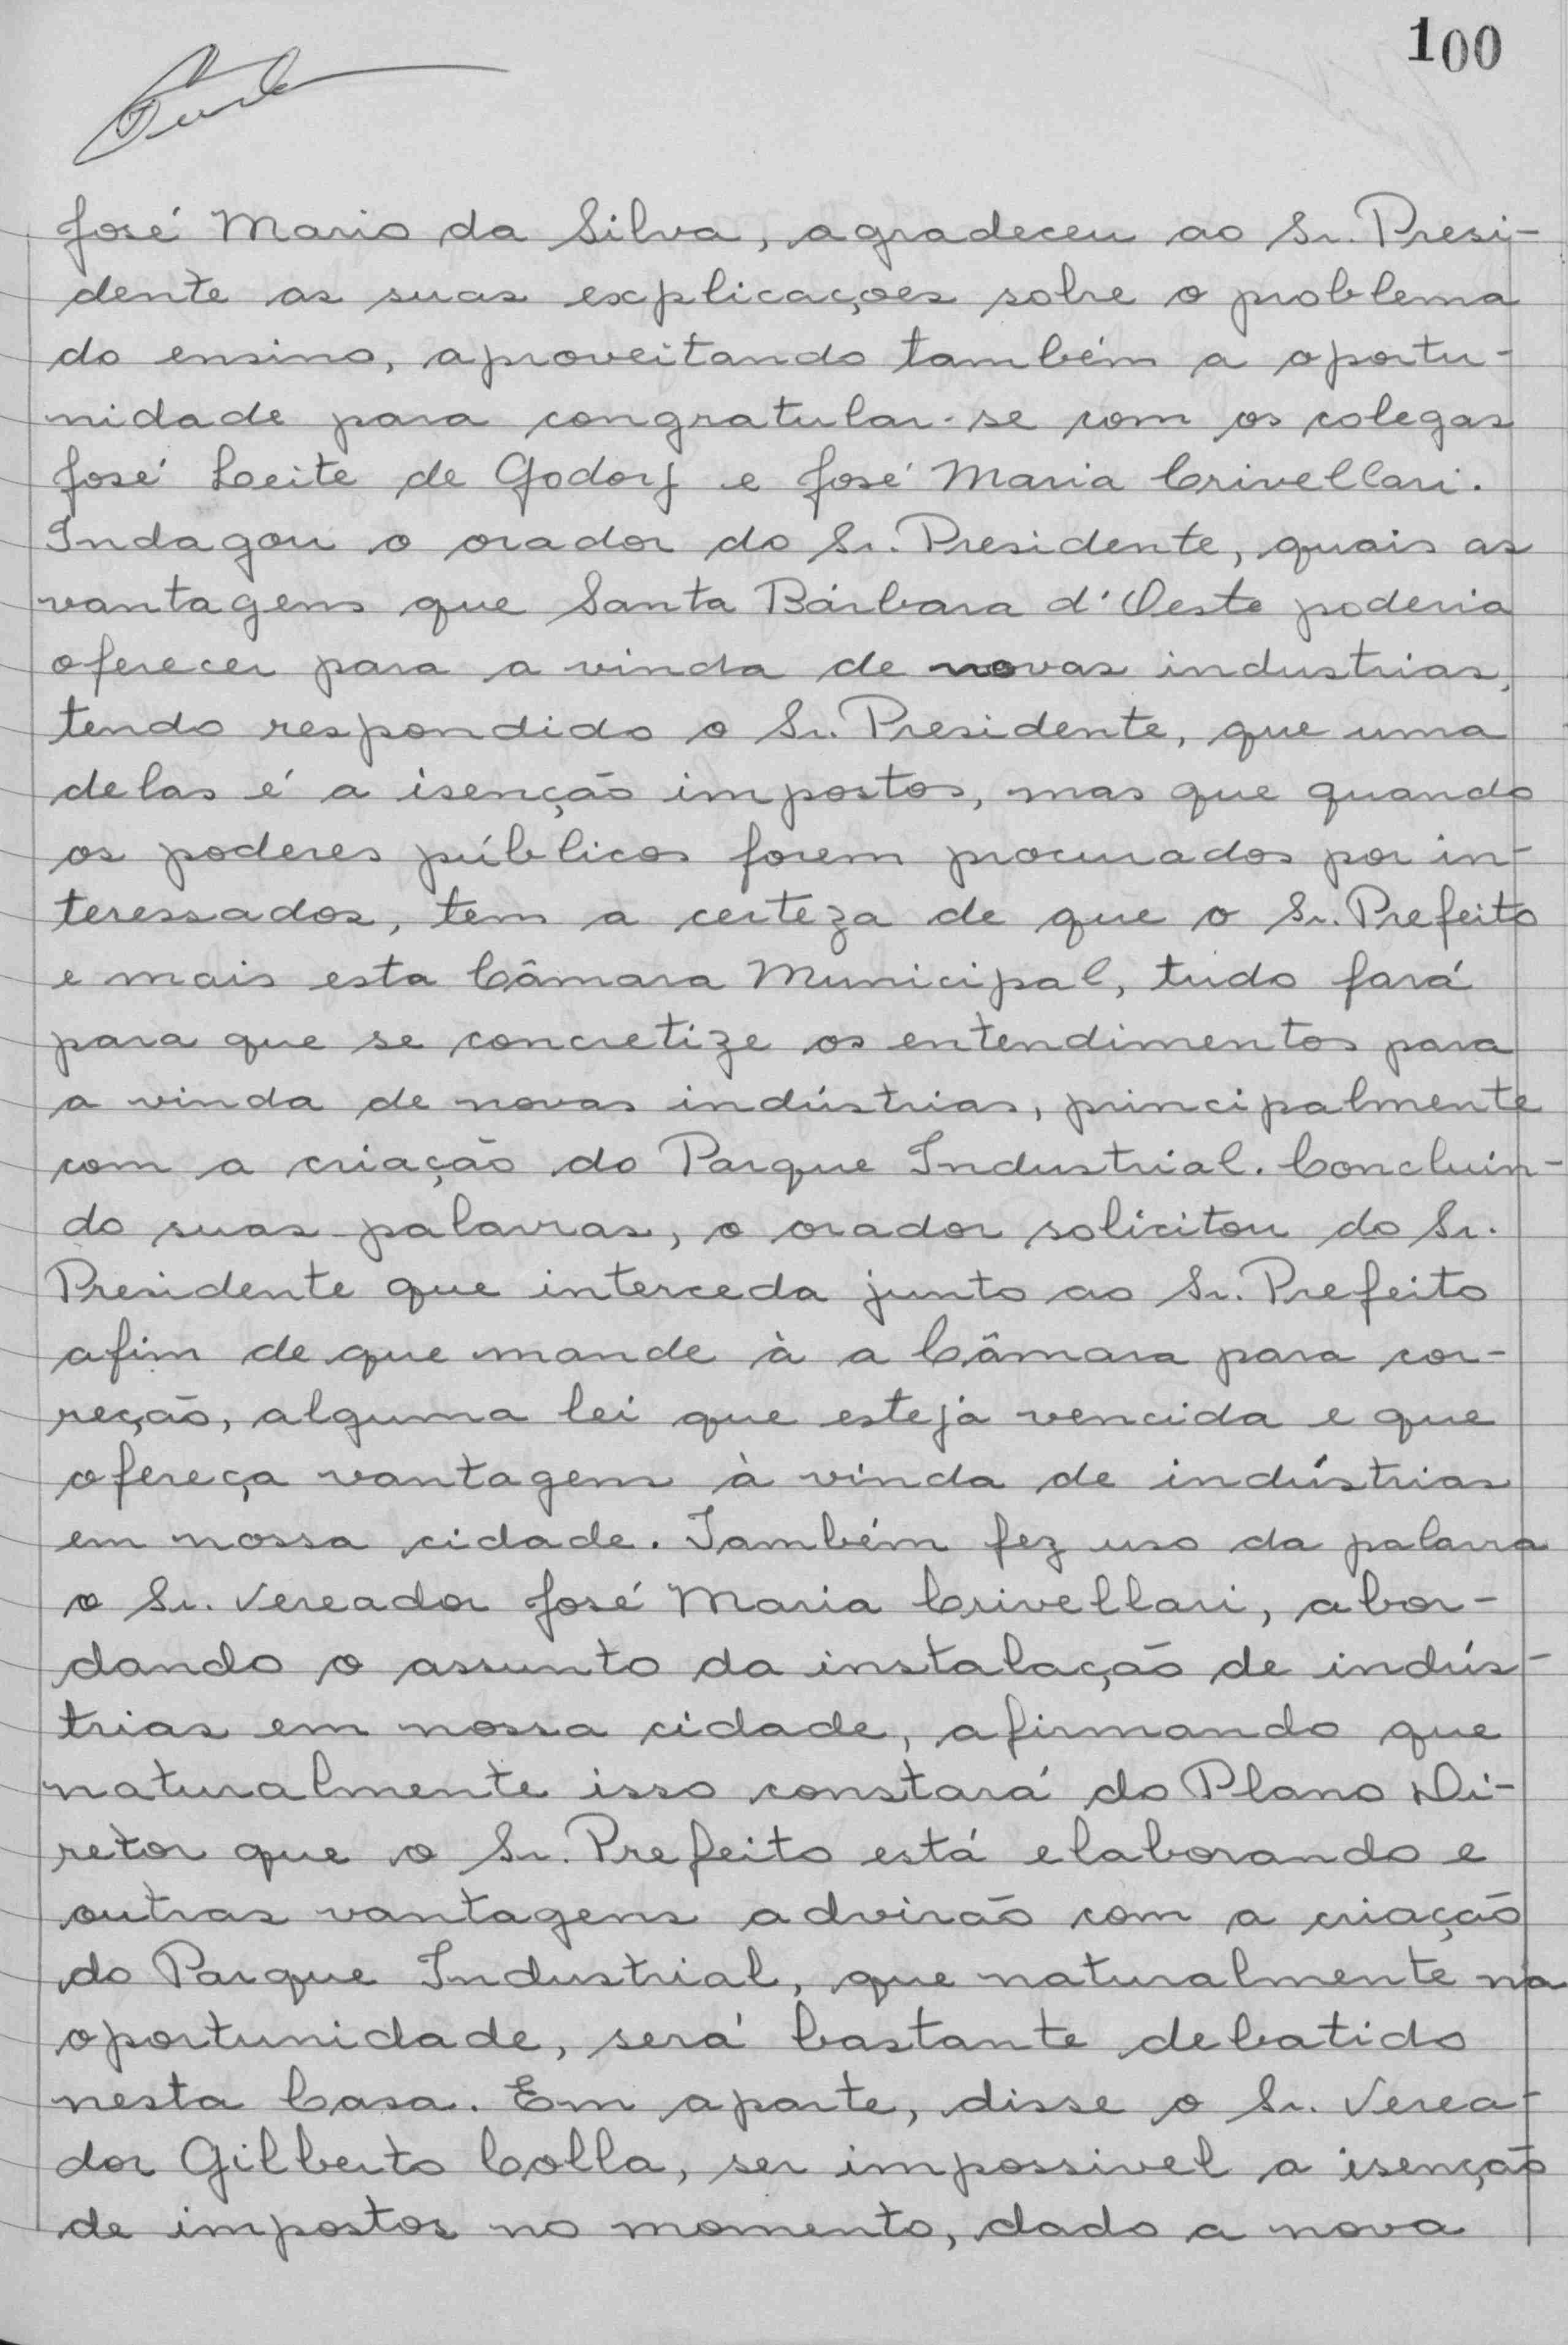 100
José Mario da Silva, agradeceu ao Sr. Presi-
dente as suas explicações sobre o problema
do ensino, aproveitando também a oportu-
nidade para congratular-se com os colegas
José Leite de Godoy e José Maria Crivellari.
Indagou o orador do Sr. Presidente, quais as
vantagens que Santa Bárbara d'Oeste poderia
oferecer para a vinda de novas industrias,
tendo respondido o Sr. Presidente, que uma
delas é a isenção impostos, mas que quando
os poderes públicos forem procurados por in-
teressados, tem a certeza de que o Sr. Prefeito
e mais esta Câmara Municipal, tudo fará
para que se concretize os entendimentos para
a vinda de novas indústrias, principalmente
com a criação do Parque Industrial. Concluin-
do suas palavras, o orador solicitou do Sr.
Presidente que interceda junto ao Sr. Prefeito
afim de que mande à a Câmara para cor-
reção, alguma lei que esteja vencida e que
ofereça vantagem à vinda de indústrias
em nossa cidade. Também fez uso da palavra
o Sr. Vereador José Maria Crivellari, abor-
dando o assunto da instalação de indús-
trias em nossa cidade, afirmando que
naturalmente isso constará do Plano Di-
retor que o Sr. Prefeito está elaborando e
outras vantagens advirão com a criação
do Parque Industrial, que naturalmente na
oportunidade, será bastante debatido
nesta Casa. Em aparte, disse o Sr. Verea-
dor Gilberto Colla, ser impossivel a isenção
de impostos no momento, dado a nova